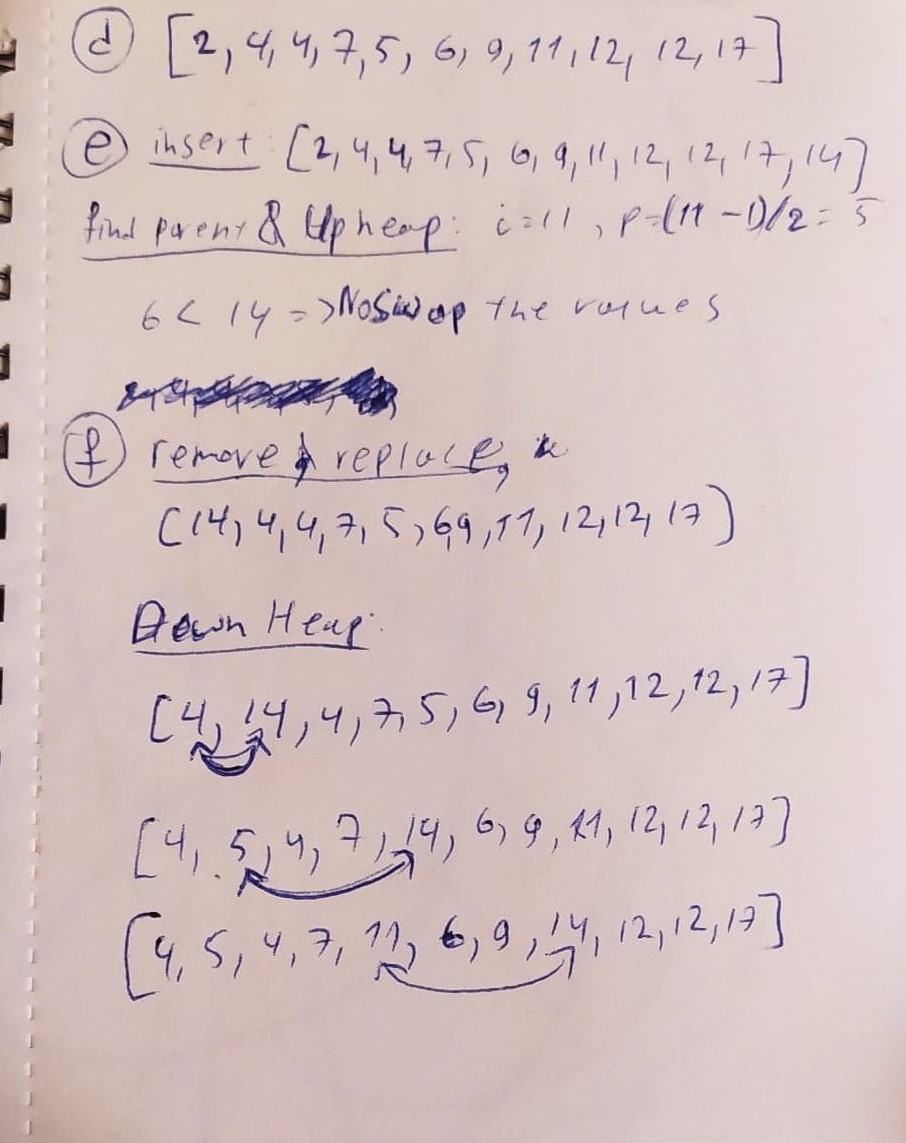 d [2, 4, 4, 7, 5, 6, 9, 11, 12, 12, 17]
e insert: [2, 4, 4, 7, 5, 6, 9, 11, 12, 12, 17, 14]
find parent & Upheap: i=11, p=(11-1)/2=5
6 < 14 => No Swap the values
f remove & replace,
[14, 4, 4, 7, 5, 6, 9, 11, 12, 12, 17]
Down Heap:
[4, 14, 4, 7, 5, 6, 9, 11, 12, 12, 17]
[4, 5, 4, 7, 14, 6, 9, 11, 12, 12, 17]
[4, 5, 4, 7, 11, 6, 9, 14, 12, 12, 17]